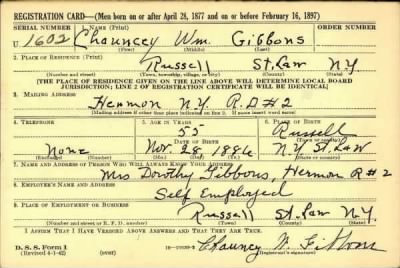 REGISTRATION CARD—(Men born on or after April 28, 1877 and on or before February 16, 1897)
SERIAL NUMBER 1. NAME (Print) ORDER NUMBER
U 1602 Chauncey Wm. Gibbons
(First) (Middle) (Last)
2. PLACE OF RESIDENCE (Print)
Russell St. Law N.Y.
(Number and street) (Town, township, village, or city) (County) (State)
[THE PLACE OF RESIDENCE GIVEN ON THE LINE ABOVE WILL DETERMINE LOCAL BOARD
JURISDICTION; LINE 2 OF REGISTRATION CERTIFICATE WILL BE IDENTICAL]
3. MAILING ADDRESS
Hermon N.Y. R.D #2
[Mailing address if other than place indicated on line 2. If same insert word same]
4. TELEPHONE 5. AGE IN YEARS 6. PLACE OF BIRTH
55 Russell
DATE OF BIRTH (Town or county)
None Nov 28, 1886 N.Y. St. Law
(Exchange) (Number) (Mo.) (Day) (Yr.) (State or country)
7. NAME AND ADDRESS OF PERSON WHO WILL ALWAYS KNOW YOUR ADDRESS
Mrs Dorothy Gibbons, Hermon R#2
8. EMPLOYER'S NAME AND ADDRESS
Self Employed
9. PLACE OF EMPLOYMENT OR BUSINESS
Russell St. Law N.Y.
(Number and street or R. F. D. number) (Town) (County) (State)
I AFFIRM THAT I HAVE VERIFIED ABOVE ANSWERS AND THAT THEY ARE TRUE.
D. S. S. Form 1
(Revised 4-1-42) (over) Chauncey W. Gibbons
(Registrant's signature)